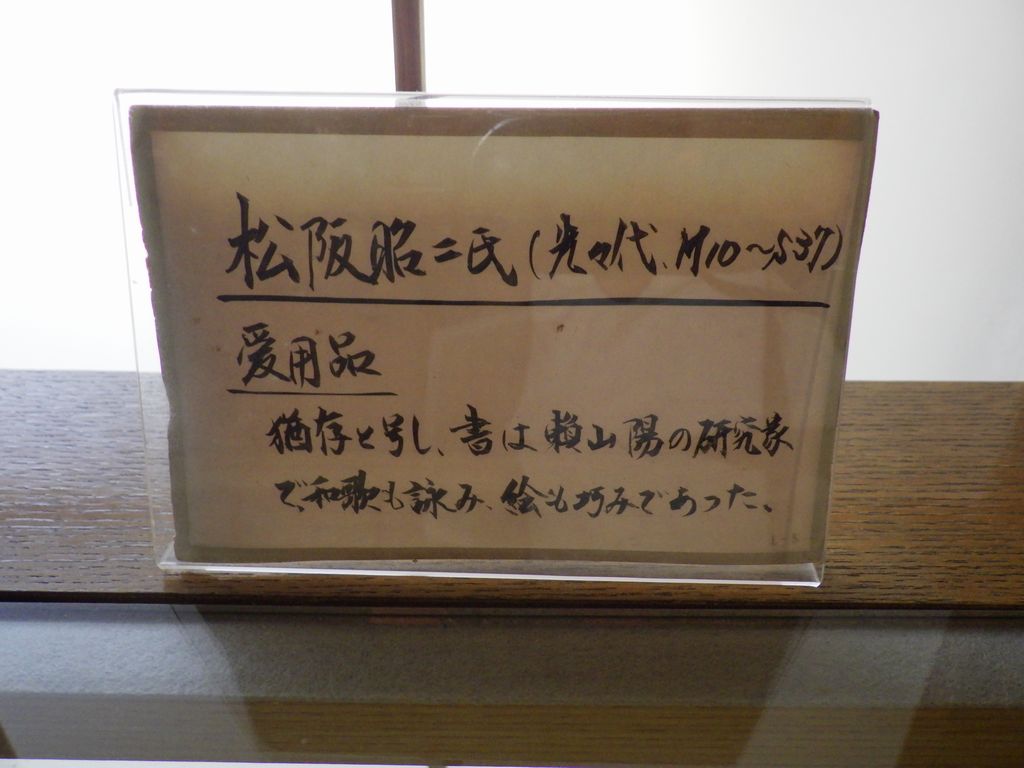 松阪昭二氏(先々代、M10〜S37)
愛用品
猶存と号し、書は頼山陽の研究家
で、和歌も詠み、絵も巧みであった、